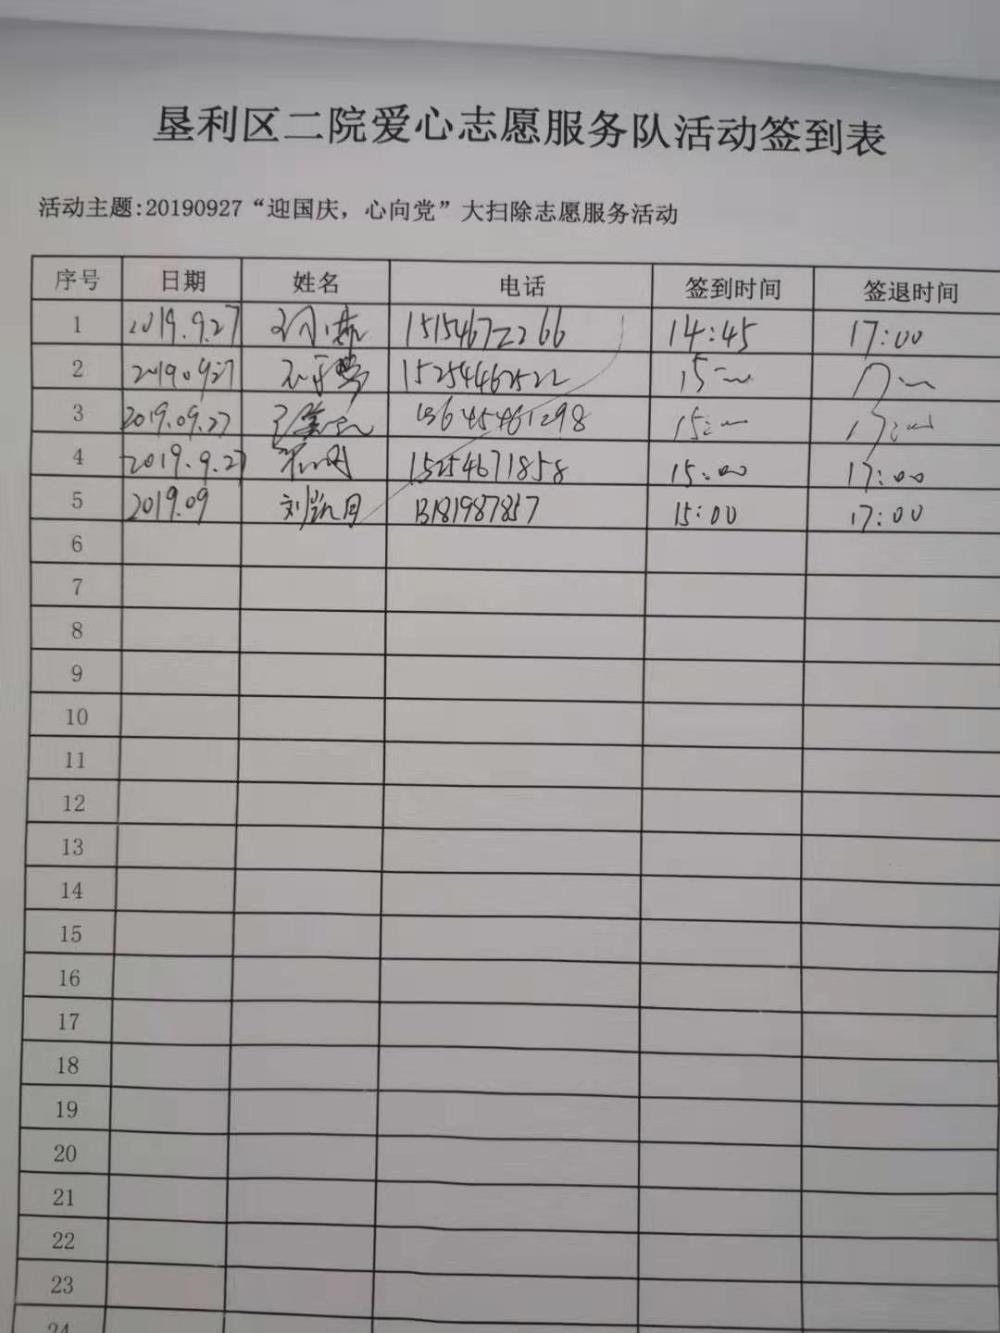 垦利区二院爱心志愿服务队活动签到表
活动主题:20190927“迎国庆，心向党”大扫除志愿服务活动
序号 日期 姓名 电话 签到时间 签退时间
1 2019.9.27 15154672266 14:45 17:00
2 2019.0927 15254462522 15:00 17:00
3 2019.09.27 13645461298 15:00 17:00
4 2019.9.27 15254671858 15:00 17:00
5 2019.09 刘凯月 13181987857 15:00 17:00
6
7
8
9
10
11
12
13
14
15
16
17
18
19
20
21
22
23
24